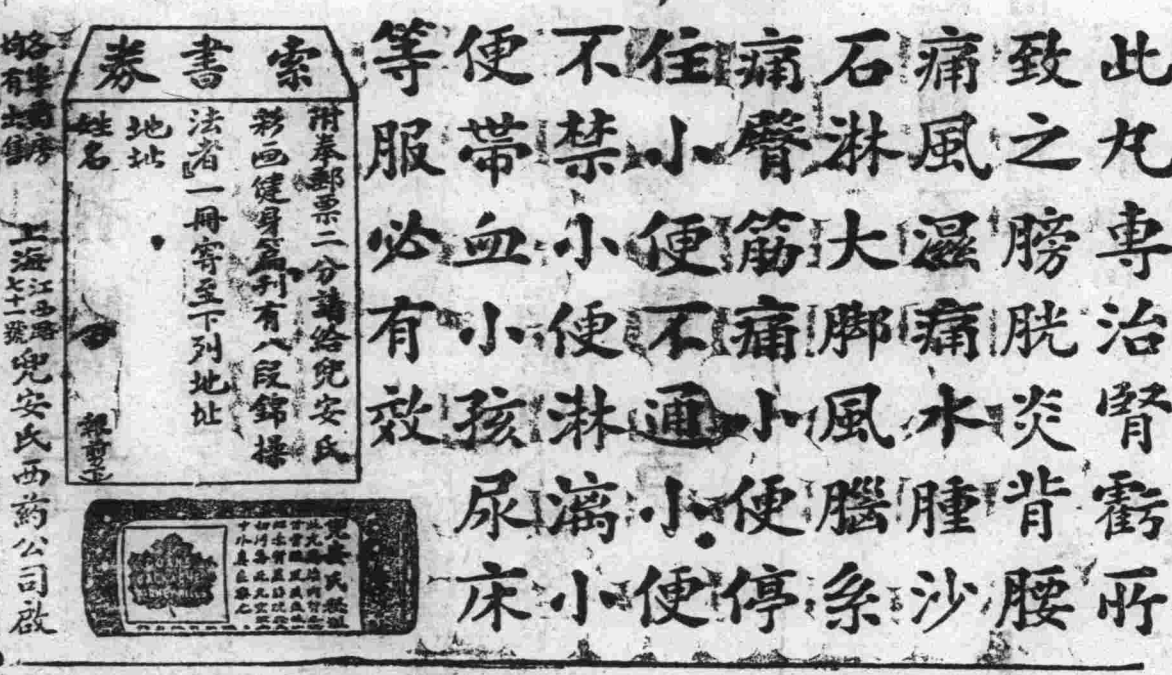 此丸專治腎虧所
致之膀胱炎背腰
痛風濕痛水腫沙
石淋大脚風腦系
痛臂筋痛小便停
住小便不通小便
不禁小便淋漓小
便帶血小孩尿床
等服必有效
索書券
附奉郵票二分請給兜安氏
彩画健身篇刊有八段錦操
法者一冊寄至下列地址
地址
姓名
各準药房
均有出售
上海江西路七十一號兜安氏西药公司啟